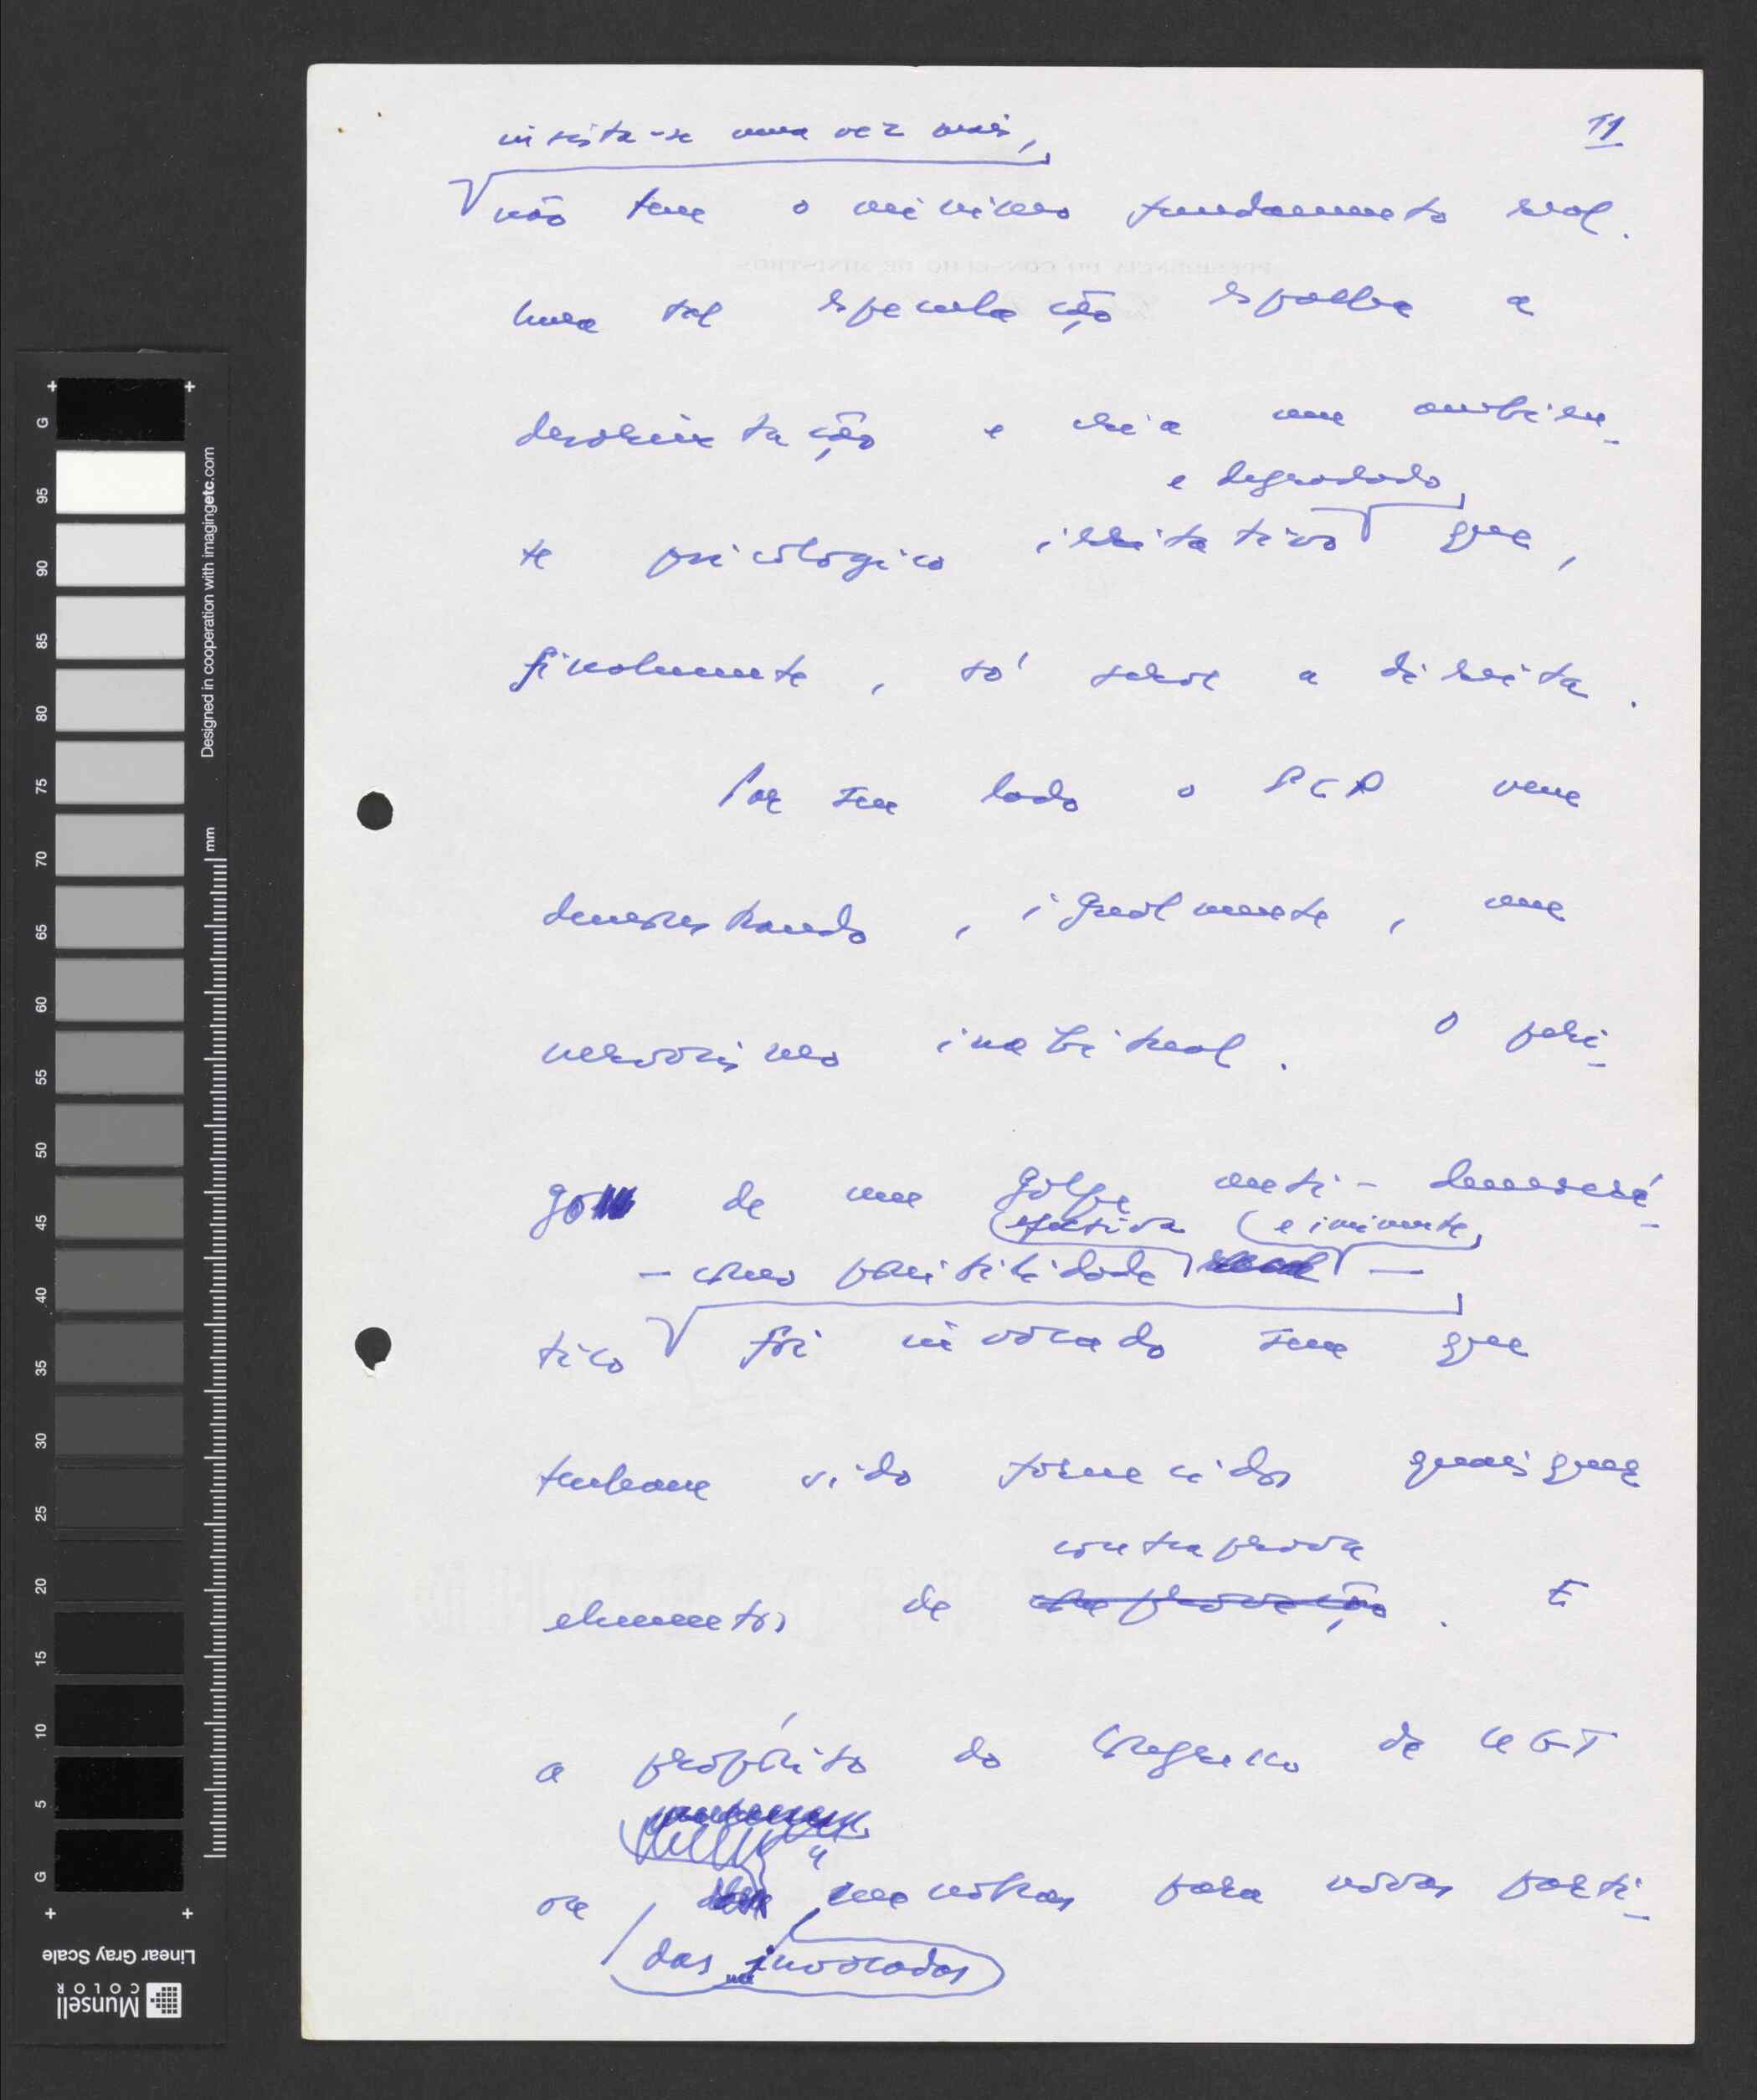 insista-se uma vez mais,
11
não tem o mínimo fundamento real.
Uma tal especulação espalha a
desorientação e cria um ambien-
e degradado,
te psicológico irritativo que,
finalmente, só serve a direita.
Por seu lado o PCP vem
demonstrando, igualmente, um
nervosismo inabitual. O peri-
go de um golpe anti-democrá-
efectiva e iminente,
— como possibilidade —
tico foi invocado sem que
tenham sido fornecidos quaisquer
elementos de
contraprova
comprovação. E
a propósito do Congresso da UGT
ou "manobras para novas parti-
das invocadas
G
95
90
85
80
75
70
65
60
55
50
45
40
35
30
25
20
15
10
5
G
mm
Designed in cooperation with imagingetc.com
Linear Gray Scale
Munsell
COLOR